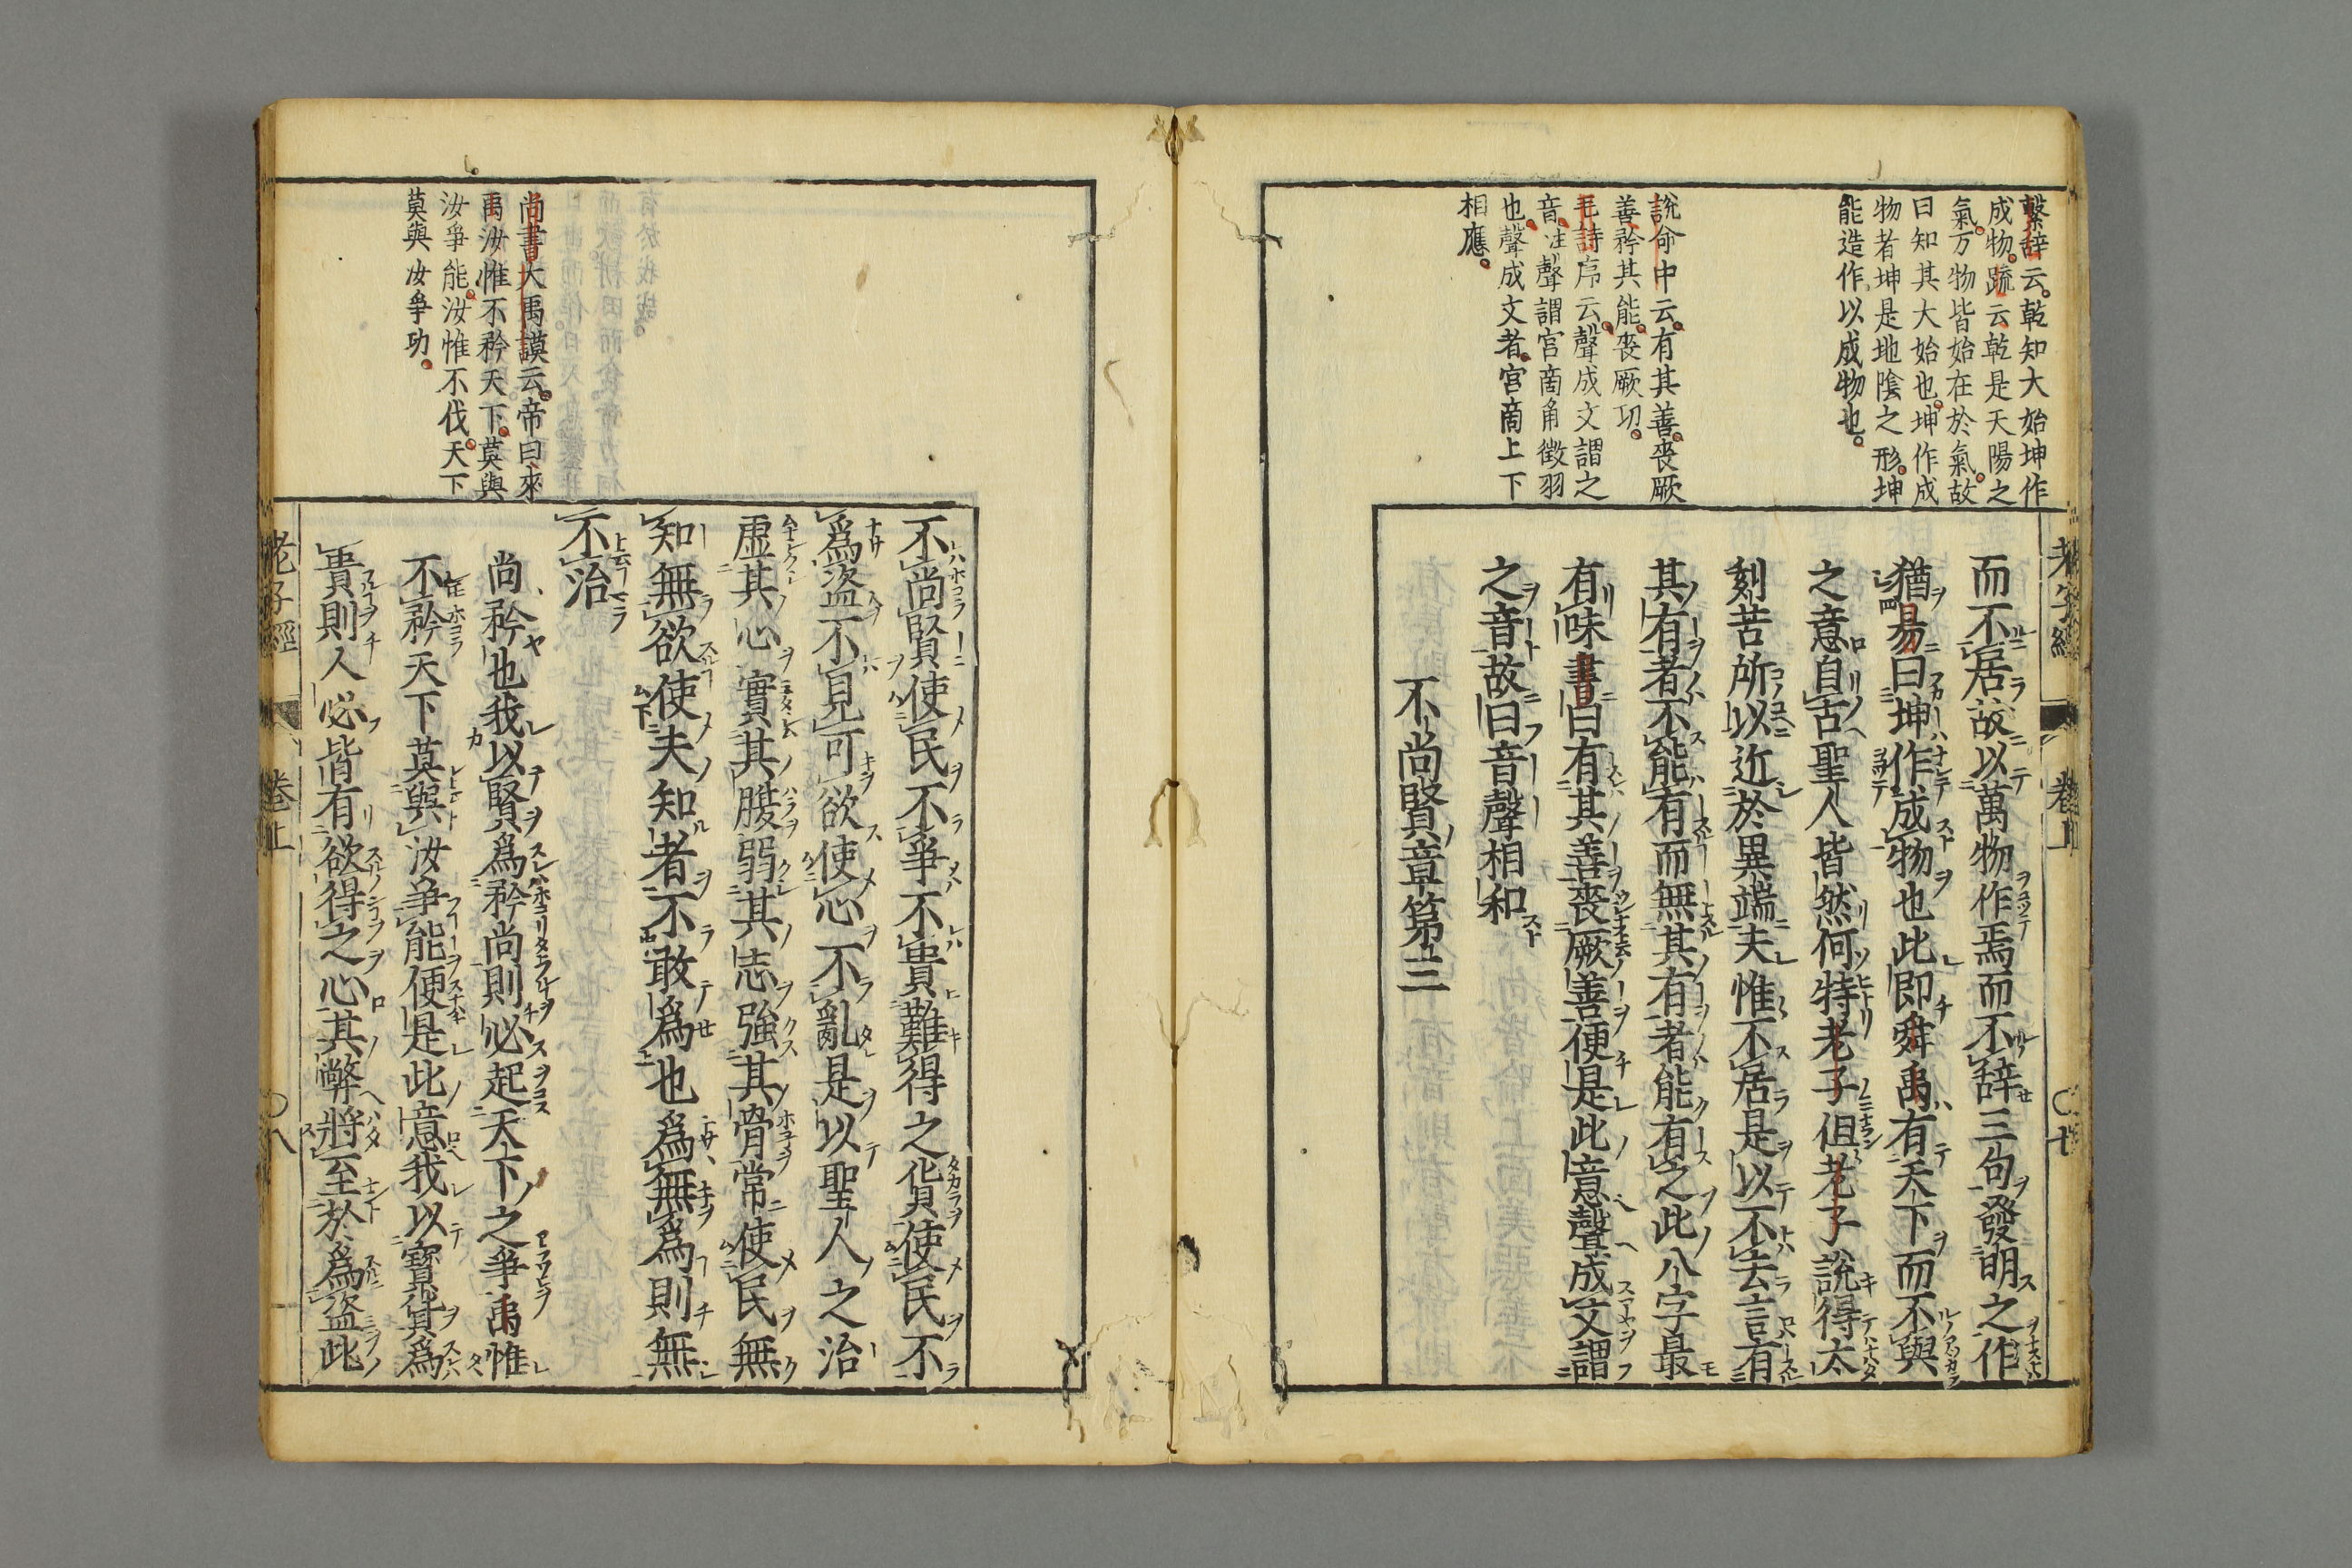 繋辞云乾知大始坤作
成物疏云乾是天陽之
氣万物皆始在於氣故
曰知其大始也坤作成
物者坤是地陰之形坤
能造作以成物也
說命中云有其善喪厥
善矜其能喪厥功
毛詩序云聲成文謂之
音注聲謂宮商角徵羽
也聲成文者宮商上下
相應
而不居故以萬物作焉而不辭三句發明之作
猶易曰坤作成物也此即舜禹有天下而不與
之意自古聖人皆然何特老子但老子說得太
刻苦所以近於異端夫惟不居是以不去言有
其有者不能有而無其有者能有之此八字最
有味書曰有其善喪厥善便是此意聲成文謂
之音故曰音聲相和
不尚賢章第三
尚書大禹謨云帝曰來
禹汝惟不矜天下莫與
汝爭能汝惟不伐天下
莫與汝爭功
不尚賢使民不爭不貴難得之貨使民不
爲盜不見可欲使心不亂是以聖人之治
虛其心實其腹弱其志強其骨常使民無
知無欲使夫知者不敢爲也爲無爲則無
不治
尚矜也我以賢爲矜尚則必起天下之爭禹惟
不矜天下莫與汝爭能便是此意我以寶貨爲
貴則人必皆有欲得之心其弊將至於爲盜此
老子經 卷上 八